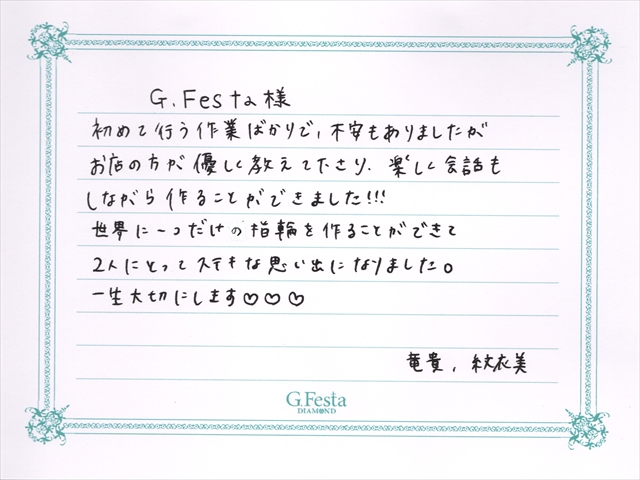 G.Festa様
初めて行う作業ばかりで、不安もありましたが
お店の方が優しく教えて下さり、楽しく会話も
しながら作ることができました!!!
世界に一つだけの指輪を作ることができて
2人にとってステキな思い出になりました。
一生大切にします♡♡♡
竜貴, 紋衣美
G.Festa
DIAMOND